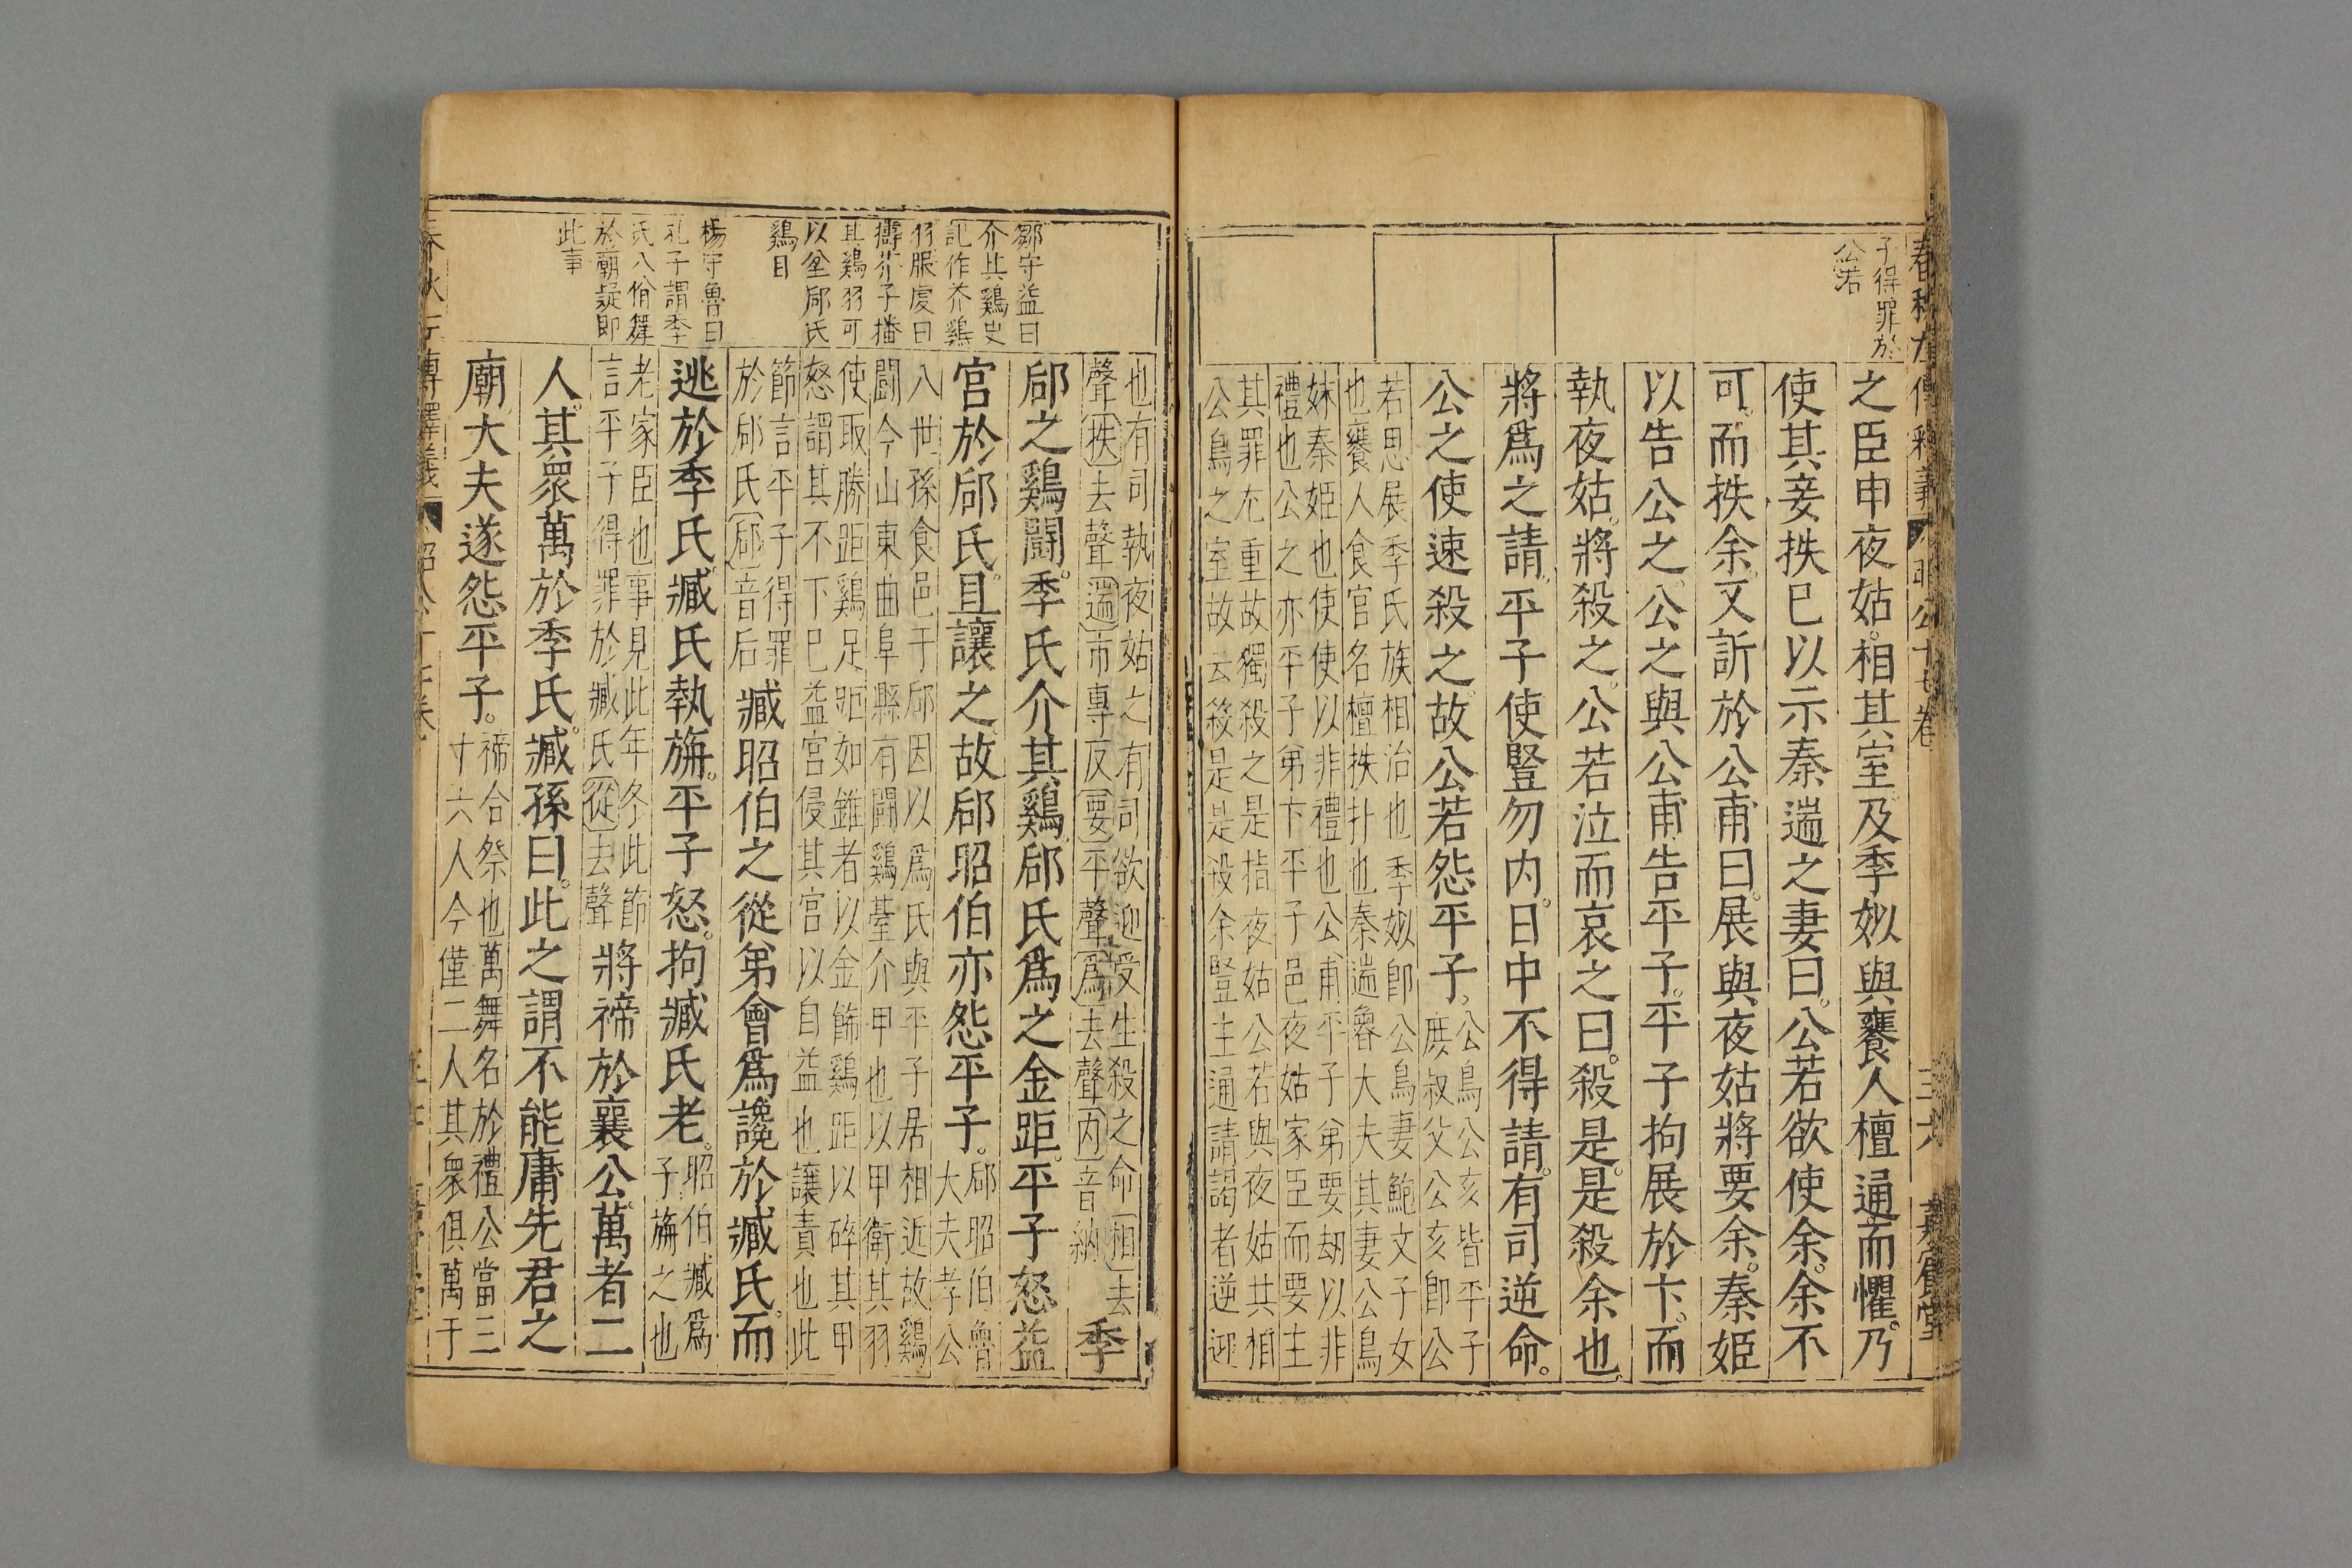 子得罪於
公若
之臣申夜姑相其室及季姒與饔人檀通而懼乃
使其妾抶已以示秦遄之妻曰公若欲使余余不
可而抶余又訴於公甫曰展與夜姑將要余秦姬
以告公之公之與公甫告平子平子拘展於卞而
執夜姑將殺之公若泣而哀之曰殺是是殺余也
將爲之請平子使豎勿内日中不得請有司逆命
公之使速殺之故公若怨平子
公鳥公亥皆平子
庶叔父公亥即公
若思展季氏族相治也季姒即公鳥妻鮑文子女
也饔人食官名檀抶扑也秦遄魯大夫其妻公鳥
妹秦姬也使使以非禮也公甫平子弟要刼以非
禮也公之亦平子弟卞平子邑夜姑家臣而要主
其罪尤重故獨殺之是指夜姑公若與夜姑共相
公鳥之室故云殺是是殺余豎主通請謁者逆迎
也有司執夜姑之有司欲迎受生殺之命相去
聲抶去聲遄市專反要平聲爲去聲内音納
季
郈之鷄鬪季氏介其鷄郈氏爲之金距平子怒益
宮於郈氏且讓之故郈昭伯亦怨平子
郈昭伯魯
大夫孝公
八世孫食邑于郈因以爲氏與平子居相近故鷄
鬪今山東曲阜縣有鬪鷄臺介甲也以甲衛其羽
使取勝距鷄足距如錐者以金飾鷄距以碎其甲
怒謂其不下巳益宮侵其宮以自益也讓責也此
節言平子得罪
於郈氏郈音后
臧昭伯之從弟會爲讒於臧氏而
逃於季氏臧氏執旃平子怒拘臧氏老
昭伯臧爲
子旃之也
老家臣也事見此年冬此節
言平子得罪於臧氏從去聲
將禘於襄公萬者二
人其衆萬於季氏臧孫曰此之謂不能庸先君之
廟大夫遂怨平子
禘合祭也萬舞名於禮公當三
十六人今僅二人其衆俱萬于
鄒守益曰
介其鷄史
記作芥鷄
羽服虔曰
擣芥子播
其鷄羽可
以坌郈氏
鷄目
楊守魯曰
孔子謂季
氏八佾舞
於廟疑即
此事